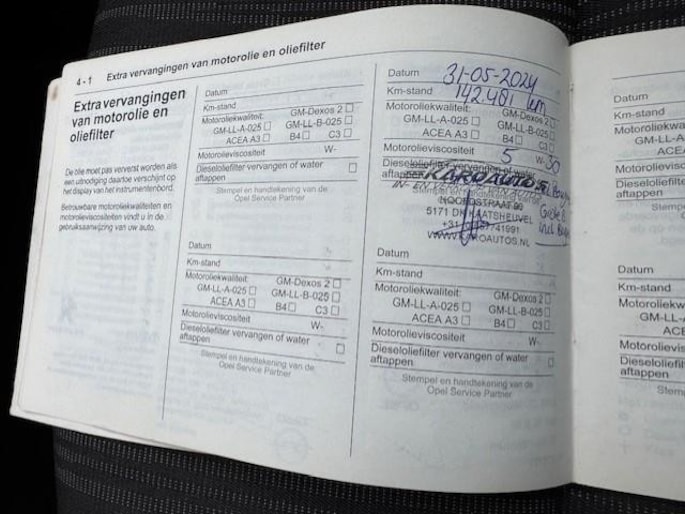 4 - 1 Extra vervangingen van motorolie en oliefilter
Extra vervangingen
van motorolie en
oliefilter
De olie moet pas ververst worden als
een uitnodiging daartoe verschijnt op
het display van het instrumentenbord.
Betrouwbare motoroliekwaliteiten en
motorolieviscositeiten vindt u in de
gebruiksaanwijzing van uw auto.
Datum
Km-stand
Motoroliekwaliteit: GM-Dexos 2 □
GM-LL-A-025 □ GM-LL-B-025 □
ACEA A3 □ B4 □ C3 □
Motorolieviscositeit W-
Dieseloliefilter vervangen of water
aftappen □
Stempel en handtekening van de
Opel Service Partner
Datum
Km-stand
Motoroliekwaliteit: GM-Dexos 2 □
GM-LL-A-025 □ GM-LL-B-025 □
ACEA A3 □ B4 □ C3 □
Motorolieviscositeit W-
Dieseloliefilter vervangen of water
aftappen □
Stempel en handtekening van de
Opel Service Partner
Datum 31-05-2024
Km-stand 142.401 km
Motoroliekwaliteit: GM-Dexos 2 □
GM-LL-A-025 □ GM-LL-B-025 □
ACEA A3 □ B4 □ C3 □
Motorolieviscositeit 5 W- 30
Dieseloliefilter vervangen of water
aftappen
KARO AUTO'S
5171 DK KAATSHEUVEL
WWW.KAROAUTOS.NL
Datum
Km-stand
Motoroliekwaliteit: GM-Dexos 2 □
GM-LL-A-025 □ GM-LL-B-025 □
ACEA A3 □ B4 □ C3 □
Motorolieviscositeit W-
Dieseloliefilter vervangen of water
aftappen □
Stempel en handtekening van de
Opel Service Partner
Datum
Km-stand
Motoroliekwa
GM-LL-A
ACEA
Motorolievisc
Dieseloliefilte
aftappen
Stempe
Datum
Km-stand
Motoroliekw
GM-LL-
ACE
Motorolievis
Dieseloliefilt
aftappen
Stem